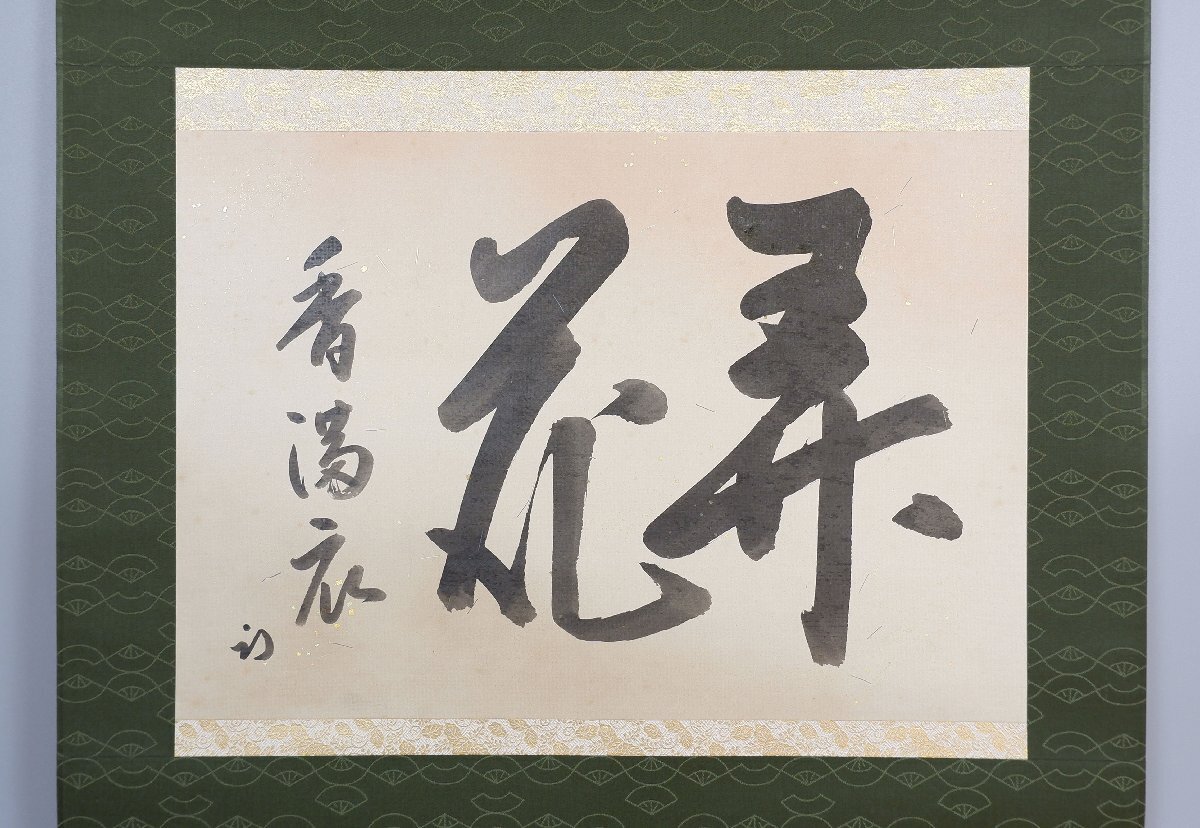 弄花
香満衣